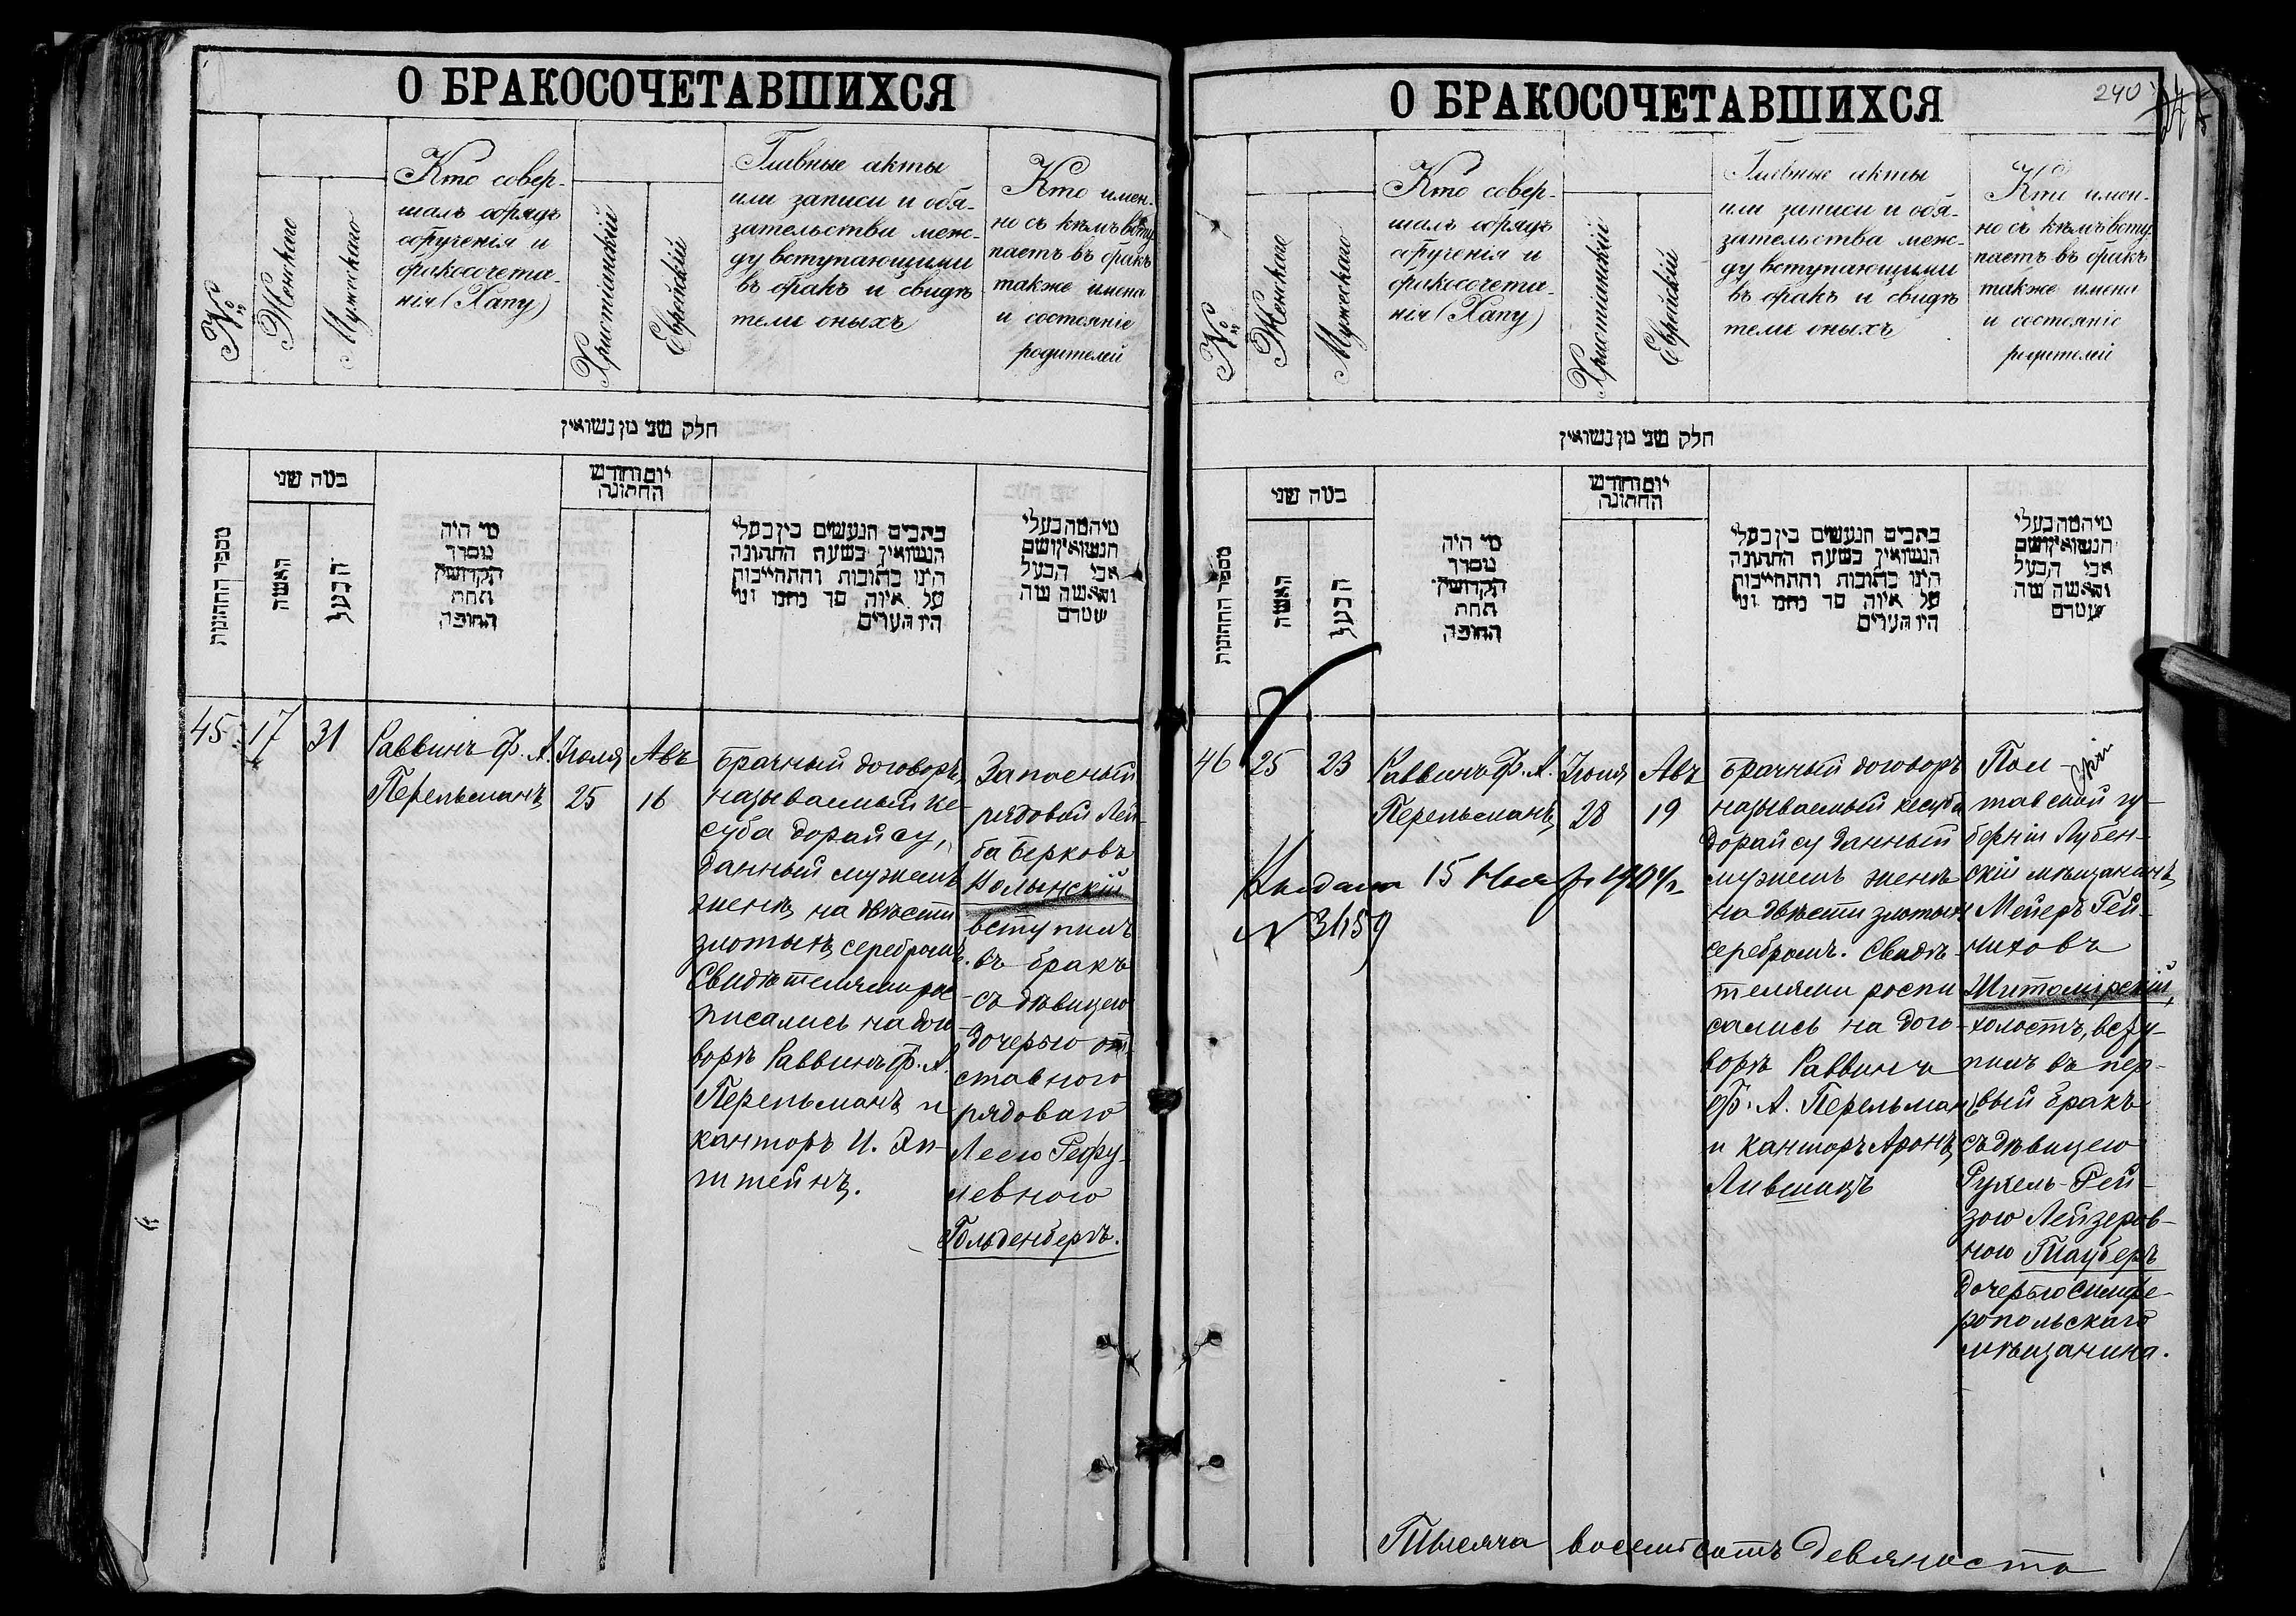 О БРАКОСОЧЕТАВШИХСЯ
№
Женскаго
Мужескаго
Кто совер-
шалъ обрядъ
обрученія и
бракосочета-
нія (Хапу)
Христіанскій
Еврейскій
Главные акты
или записи и обя-
зательства меж-
ду вступающими
въ бракъ и свидѣ
тели оныхъ
Кто имен-
но съ кѣмъ всту
паетъ въ бракъ
также имена
и состояніе
родителей
חלק שני מן נשואין
מספר החתונות
כמה שני
האשה
הבעל
מי היה
מסדר
הקדושין
תחת
החופה
יום וחודש
החתונה
כתבים הנעשים בין בעלי
הנשואין בשעת החתונה
היינו כתובות והתחייבות
על איזה סך נתנו ומי
היו העדים
מי המה בעלי
הנשואין ושם
אבי הבעל
והאשה מה
שמדם
45
17
31
Раввинъ Ф. А.
Перельманъ
Іюля
25
Авъ
16
Брачный договоръ,
называемый ке-
суба дорайсу,
данный мужемъ
женѣ, на двѣсти
злотыхъ серебромъ.
Свидѣтелями рос
писались на дого
ворѣ Раввинъ Ф. А.
Перельманъ и
канторъ И. Эп-
штейнъ.
Запасный
рядовой Лей-
ба Берковъ
Волынскій
вступилъ
въ бракъ
съ дѣвицею
дочерью от
ставного
рядоваго
Леею Рефу-
левною
Гольденбергъ.
О БРАКОСОЧЕТАВШИХСЯ
240
№
Женскаго
Мужескаго
Кто совер-
шалъ обрядъ
обрученія и
бракосочета-
нія (Хапу)
Христіанскій
Еврейскій
Главные акты
или записи и обя-
зательства меж-
ду вступающими
въ бракъ и свидѣ
тели оныхъ
Кто имен-
но съ кѣмъ всту
паетъ въ бракъ
также имена
и состояніе
родителей
חלק שני מן נשואין
מספר החתונות
כמה שני
האשה
הבעל
מי היה
מסדר
הקדושין
תחת
החופה
יום וחודש
החתונה
כתבים הנעשים בין בעלי
הנשואין בשעת החתונה
היינו כתובות והתחייבות
על איזה סך נתנו ומי
היו העדים
מי המה בעלי
הנשואין ושם
אבי הבעל
והאשה מה
שמדם
46
25
23
Раввинъ Ф. А.
Перельманъ
Іюля
28
Авъ
19
15
Брачный договоръ
называемый кесуба
дорайсу данный
мужемъ женѣ
на двѣсти злотыхъ
серебромъ. Свидѣ-
телями роспи
сались на дого-
ворѣ Раввинъ
Ф. А. Перельманъ
и канторъ Аронъ
Лившицъ
Пол-
тавской гу-
берніи Лубен-
скій мѣщанинъ
Мейеръ Гей-
ниховъ
Житомірскій,
холостъ, всту-
пилъ въ пер-
вый бракъ
съ дѣвицею
Рухель-Рей-
зою Лейзеров-
ною Тауберъ
дочерью симфе-
ропольскаго
мѣщанина.
Тысяча восемьсотъ девяноста